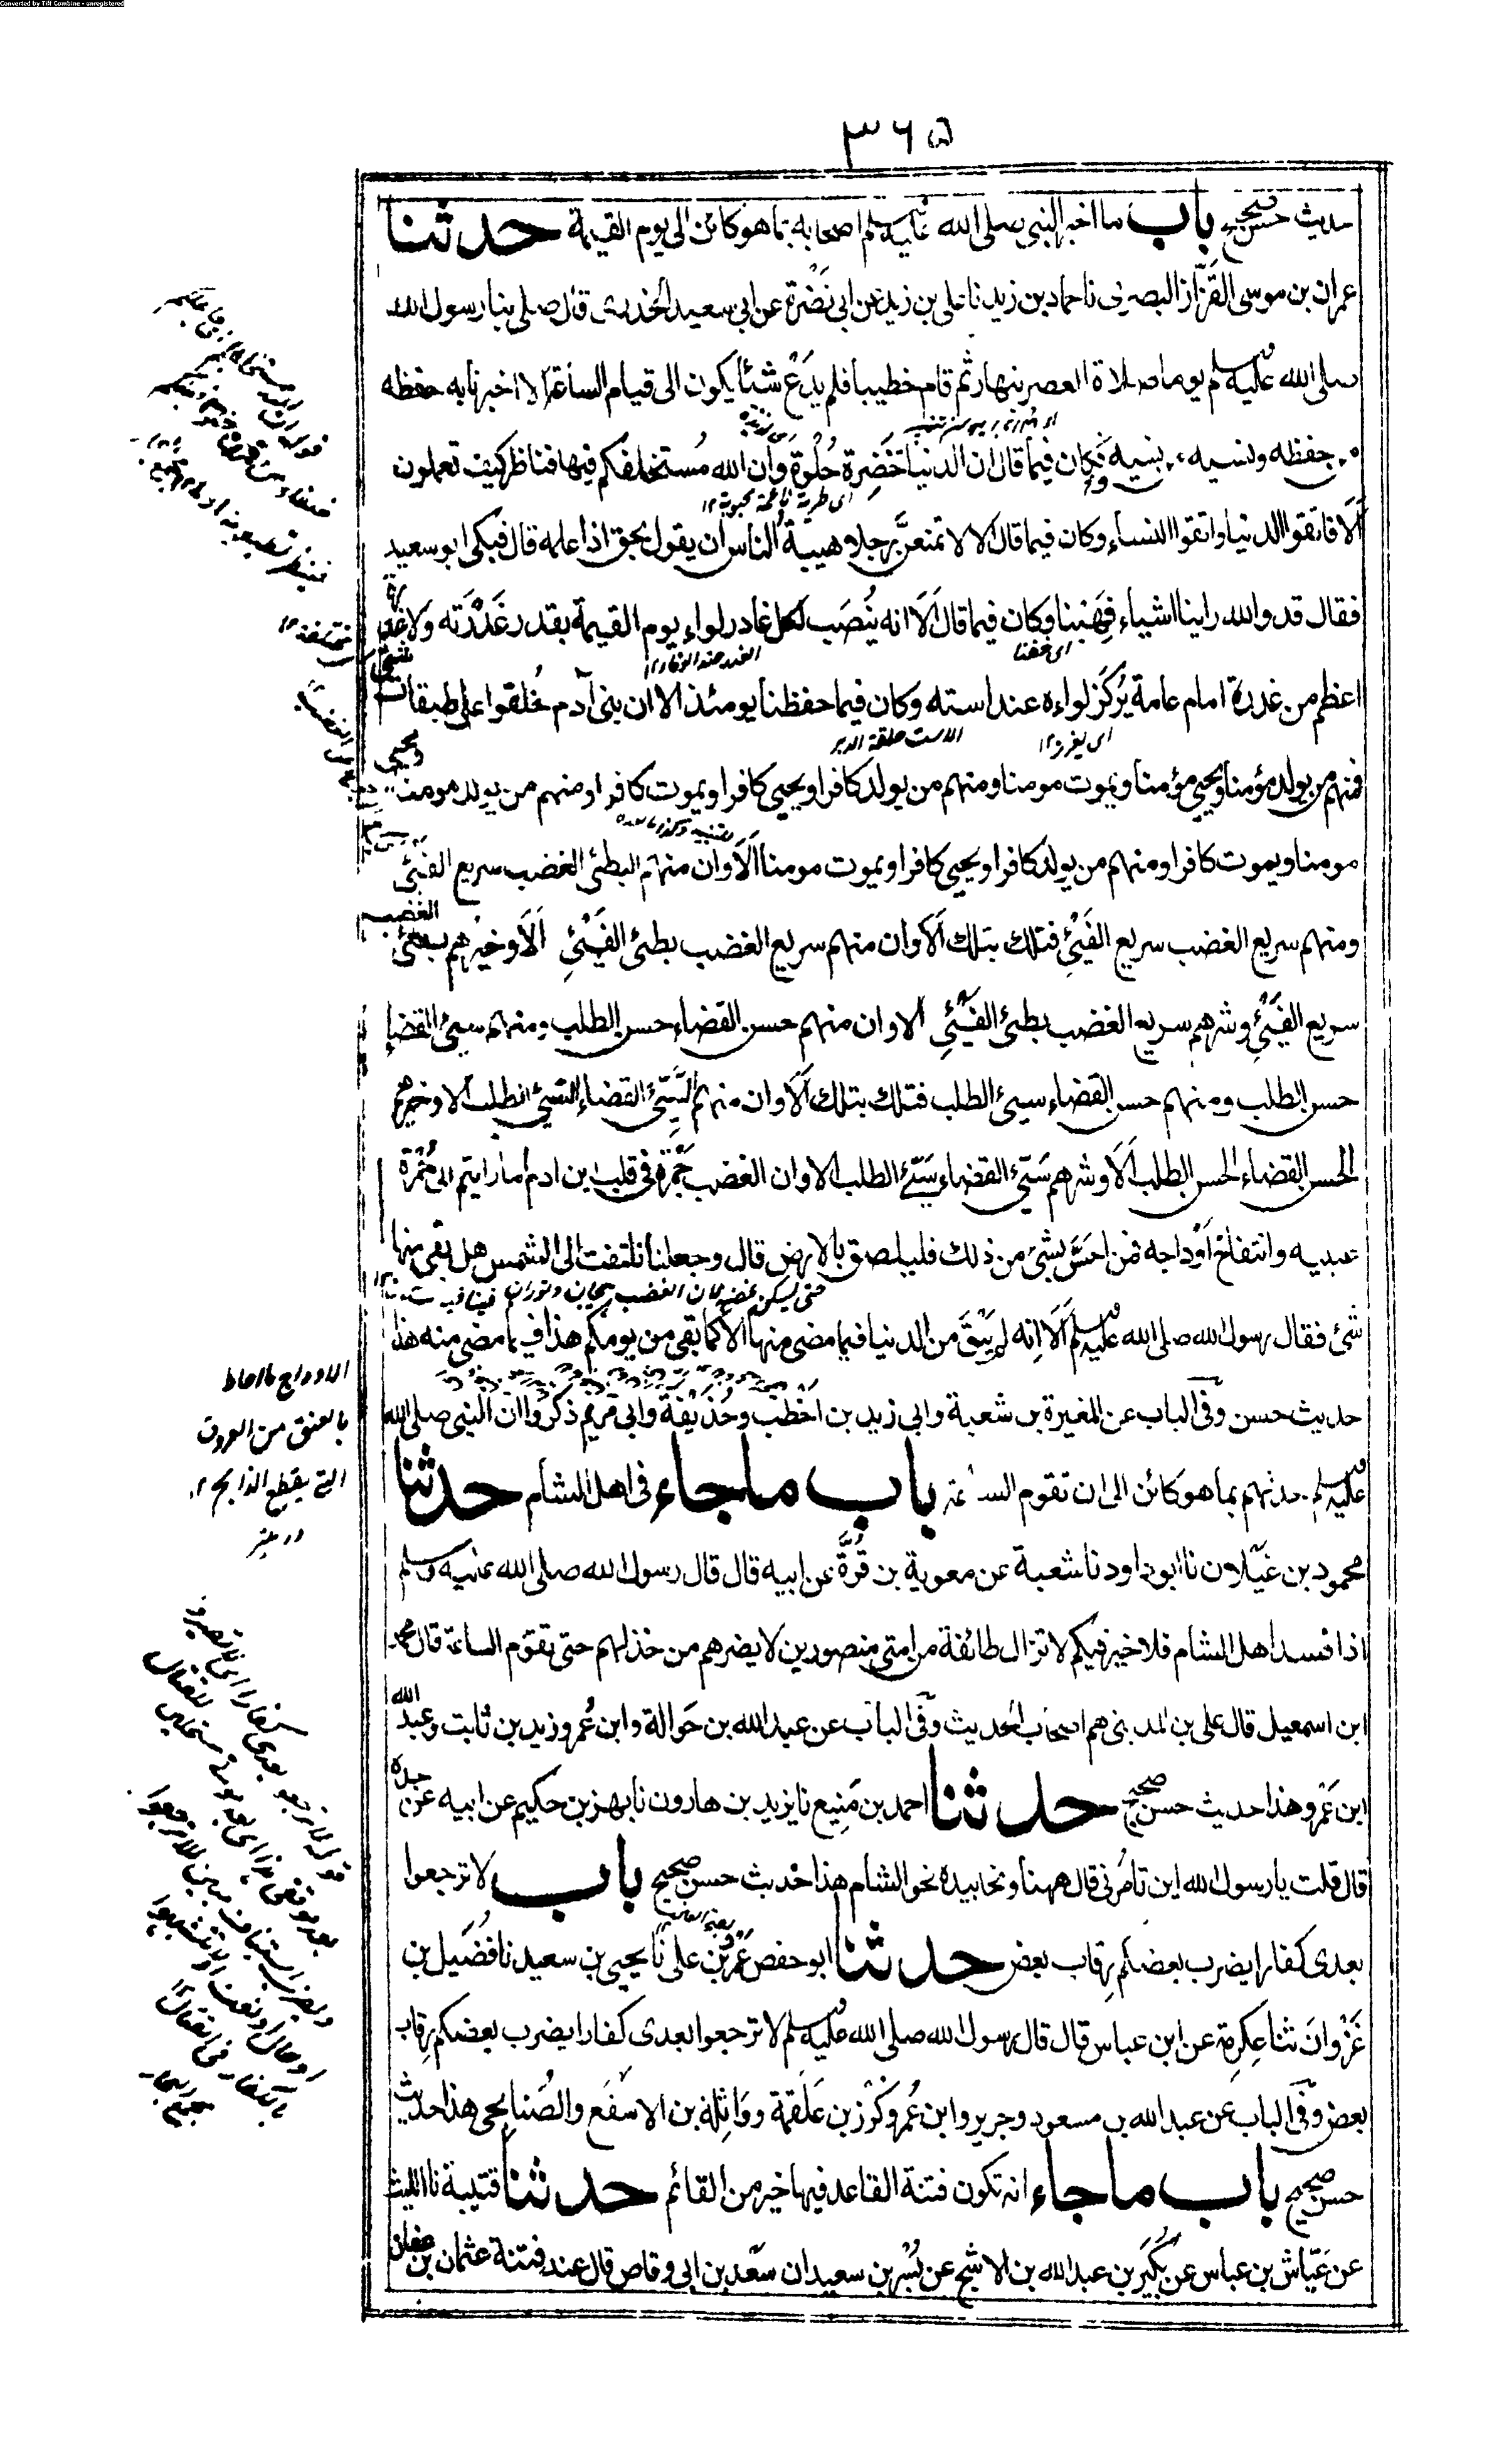 Converted by Tiff Combine - unregistered
۳۶۵
حديث حسن صحيح باب ما اخبر النبى صلى الله عليه وسلم اصحابه بما هو كائن الى يوم القيمة حدثنا
عمران بن موسى القَزَّاز البصرى نا حماد بن زيد نا على بن زيد عن ابى نَضْرَة عن ابى سعيد الخدرى قال صلى بنا رسول الله
صلى الله عليه وسلم يوما صلاة العصر بنهار ثم قام خطيبا فلم يَدَعْ شئا يكون الى قيام الساعة الا اخبرنا به حفظه
من حفظه ونسيه من نسيه فكان فيما قال ان الدنيا خَضِرَة حُلْوَة وان الله مُستخلفكم فيها فناظر كيف تعملون
اى طرية ناعمة محبوبة ۱۲
اَلَا فاتقوا الدنيا واتقوا النساء وكان فيما قال الا لا تمنعنَّ رجلا هيبةُ الناس ان يقول بحق اذا علمه قال فبكى ابو سعيد
فقال قد والله راينا اشياء فهِبنا وكان فيما قال اَلَا انه يُنصَب لكل غادر لواء يوم القيمة بقدر غَدْرَته ولا غدرة
اى خفنا
الغدر ضد الوفاء ۱۲
اعظم من غدرة امام عامة يُركَز لواءه عند استه وكان فيما حفظنا يومئذ الا ان بنى آدم خُلقوا على طبقات شتى
اى يغرز ۱۲
الاست حلقة الدبر
فمنهم من يولد مؤمنا ويحيى مؤمنا ويموت مومنا ومنهم من يولد كافرا ويحيى كافرا ويموت كافرا ومنهم من يولد مومنا ويحيى
مومنا ويموت كافرا ومنهم من يولد كافرا ويحيى كافرا ويموت مومنا اَلَا وان منهم البطئ الغضب سريع الفئ
ومنهم سريع الغضب سريع الفَئِ فتلك بتلك اَلَا وان منهم سريع الغضب بطئ الفَئِ اَلَا وخيرهم بطئ الغضب
سريع الفَئِ وشرهم سريع الغضب بطئ الفَئِ الا وان منهم حسن القضاء حسن الطلب ومنهم سيئ القضاء
حسن الطلب ومنهم حسن القضاء سيئ الطلب فتلك بتلك اَلَا وان منهم السَّيِّئ القضاء السَّيِّئ الطلب الا وخيرهم
الحسن القضاء الحسن الطلب اَلَا وشرهم سَيّئ القضاء سَيّئ الطلب الا وان الغضب جَمْرَة فى قلب ابن ادم اما رايتم الى حُمْرَة
عينيه وانتفاخ اَوْداجه فمن احَسَّ بشئ من ذلك فليلصق بالارض قال وجعلنا نلتفت الى الشمس هل بقى منها
شئ فقال رسول الله صلى الله عليه وسلم اَلَا اِنه لم يَبْقَ من الدنيا فيما مضى منها الا كما بقى من يومكم هذا فيما مضى منه هذا
حديث حسن وفى الباب عن المغيرة بن شعبة وابى زيد بن اَخْطَب وحُذَيْفَة وابى مريم ذكروا ان النبى صلى الله
عليه وسلم حدثهم بما هو كائن الى ان تقوم الساعة باب ما جاء فى اهل الشأم حدثنا
محمود بن غَيْلان نا ابو داود نا شعبة عن معوية بن قُرَّة عن ابيه قال قال رسول الله صلى الله عليه وسلم
اذا فسد اهل الشام فلا خير فيكم لا تزال طائفة من امتى منصورين لا يضرهم من خذلهم حتى تقوم الساعة قال محمد
ابن اسمعيل قال على بن المدينى هم اصحاب الحديث وفى الباب عن عبد الله بن حَوالة وابن عُمر وزيد بن ثابت وعبد الله
ابن عَمْرو هذا حديث حسن صحيح حدثنا احمد بن مَنِيع نا يزيد بن هارون نا بهز بن حكيم عن ابيه عن جده
قال قلت يا رسول الله اين تأمُرنى قال ههنا ونحا بيده نحو الشام هذا حديث حسن صحيح باب لا ترجعوا
بعدى كفارا يضرب بعضكم رقاب بعض حدثنا ابو حفص عَمْرو بن على نا يحيى بن سعيد نا فُضَيل بن
غَزْوَان ثنا عِكرِمة عن ابن عباس قال قال رسول الله صلى الله عليه وسلم لا ترجعوا بعدى كفارا يضرب بعضكم رقاب
بعض وفى الباب عن عبد الله بن مسعود وجرير وابن عُمر وكُرْز بن عَلْقَمَة ووَاثِلة بن الاسْقَع والصُّنابحى هذا حديث
حسن صحيح باب ما جاء انه تكون فتنة القاعد فيها خير من القائم حدثنا قتيبة نا الليث
عن عَيَّاش بن عباس عن بُكَير بن عبد الله بن الاشج عن بُسْر بن سعيد ان سَعْد بن ابى وقاص قال عند فتنة عثمان بن عفان
الاوداج ما احاط
بالعنق من العروق
التى يقطع الذابح ۱۲